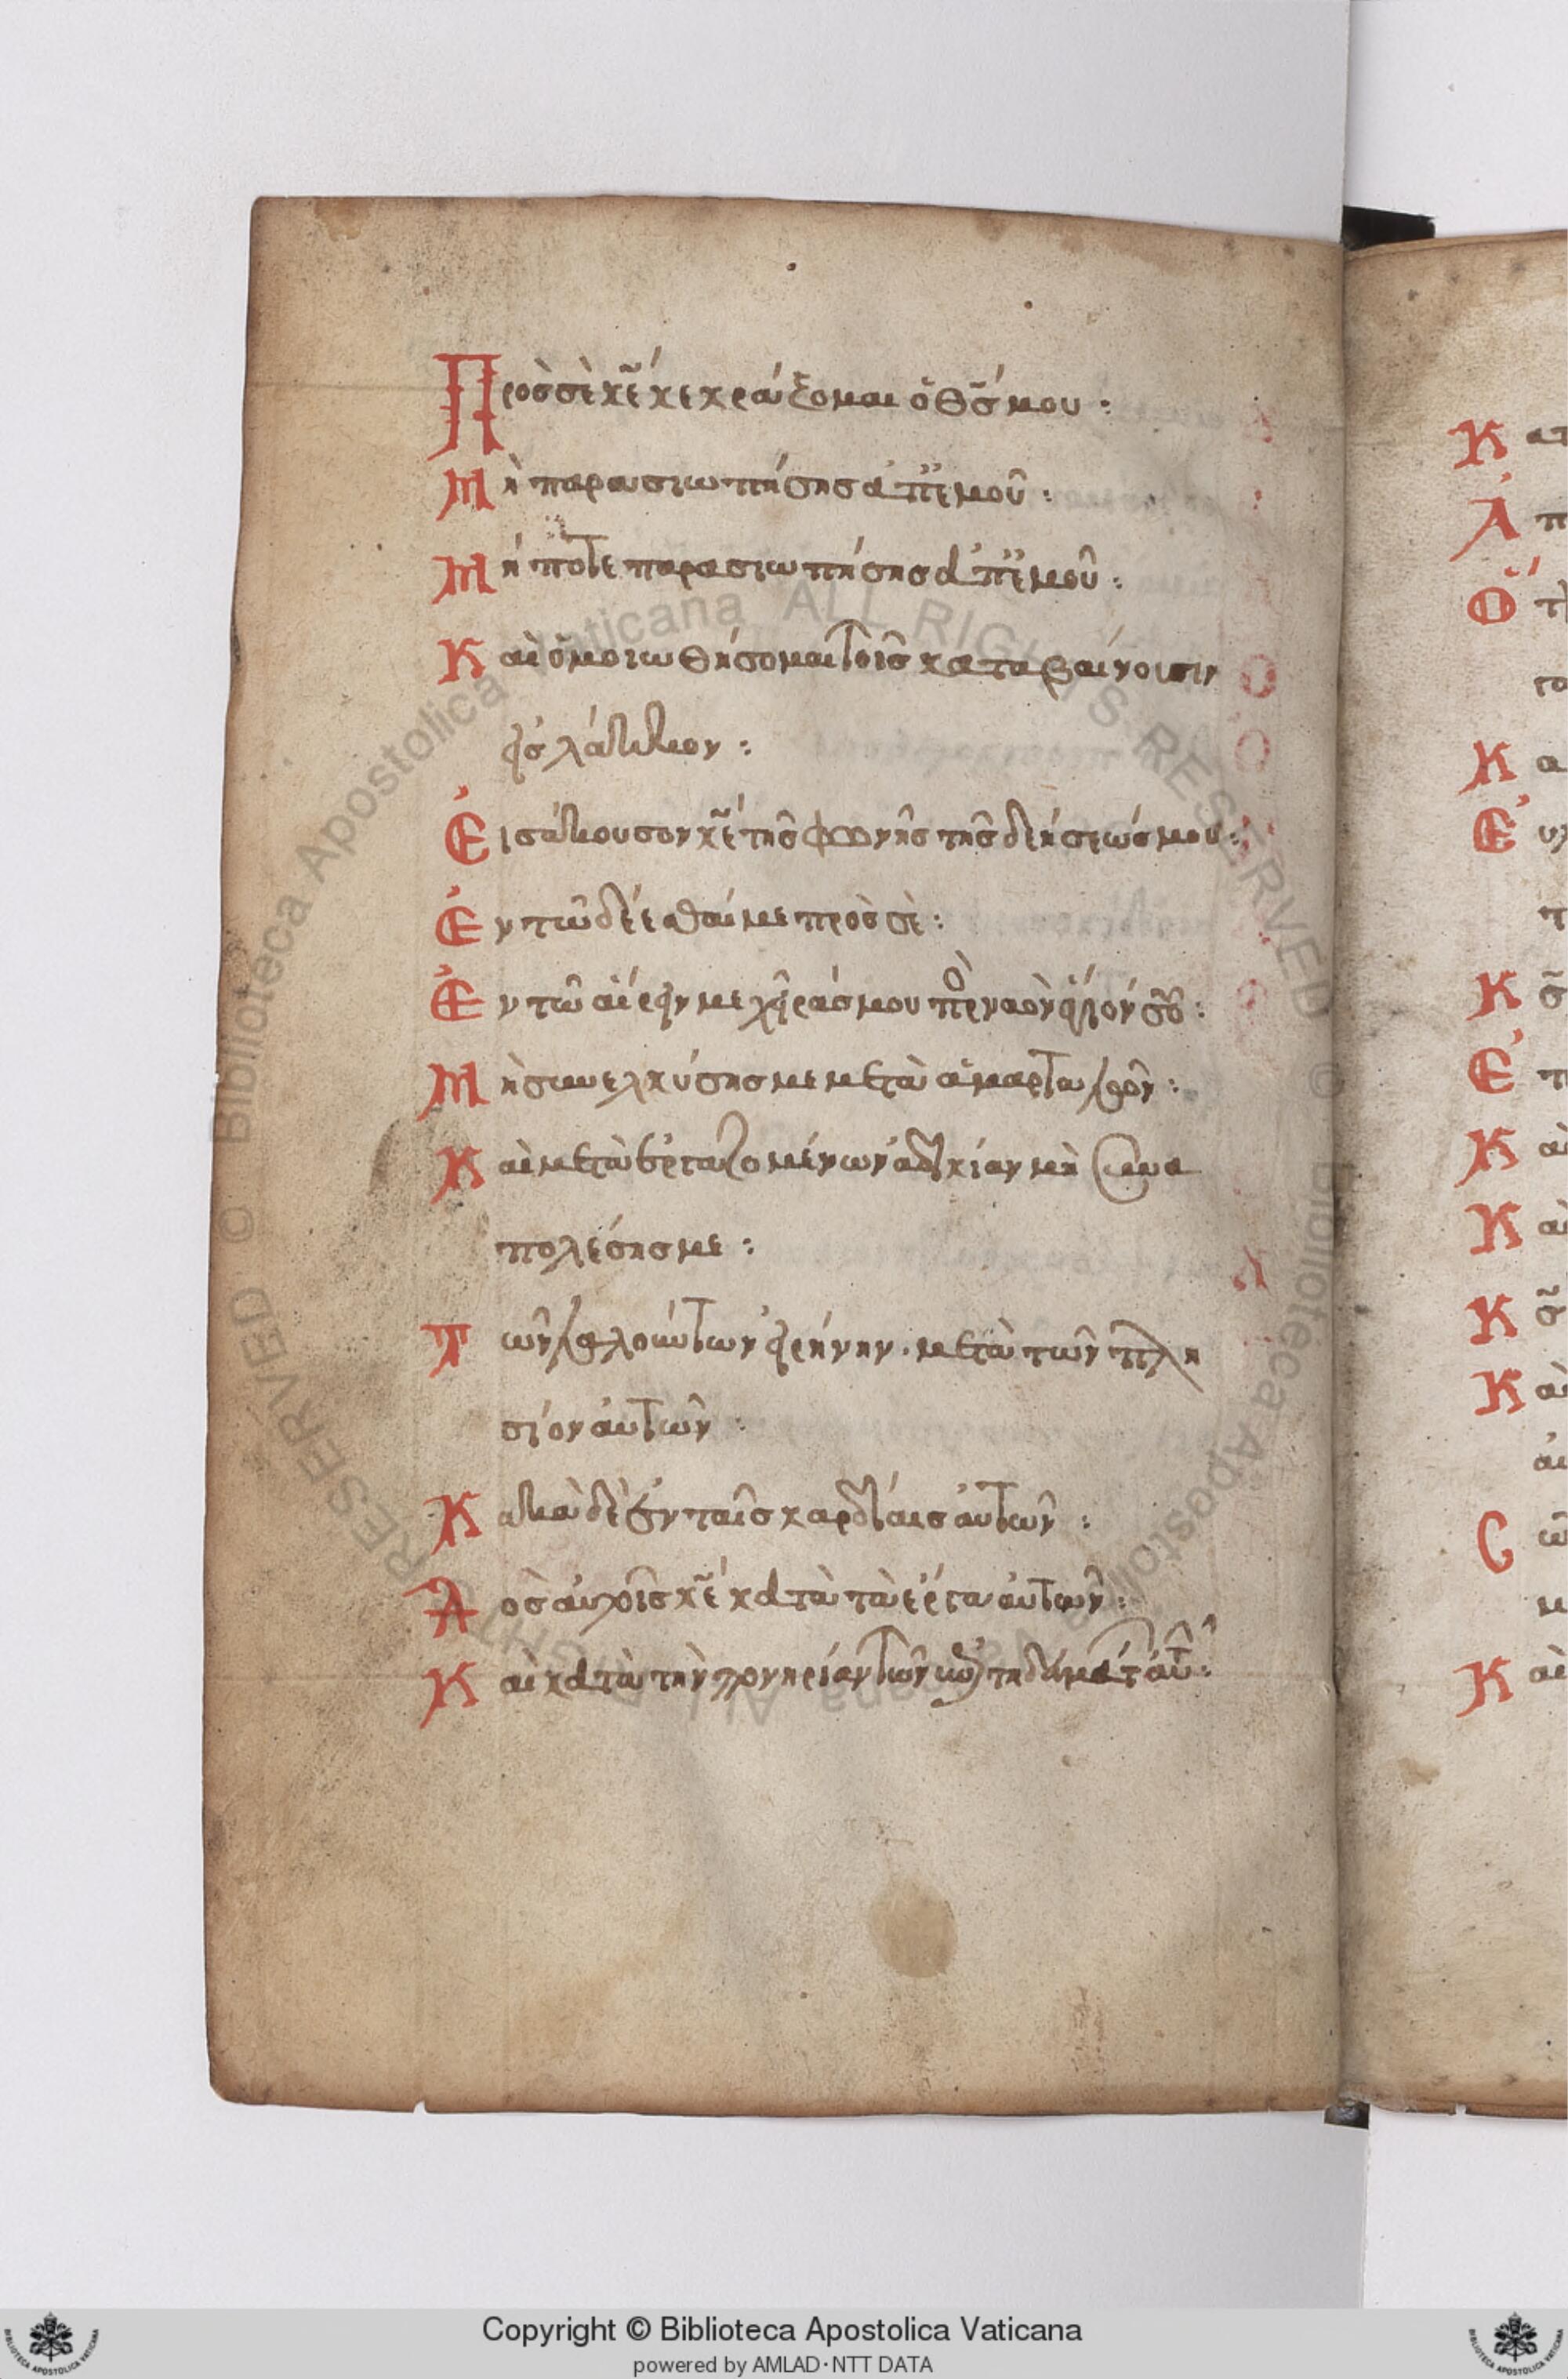 Πρὸς σὲ κε̃ κεκράξομαι ὁ θς̃ μου :
Μὴ παρασιωπήσης ἀπ' ἐμοῦ :
Μήποτε παρασιωπήσης ἀπ' ἐμοῦ :
Καὶ ὁμοιωθήσομαι τοῖς καταβαίνουσιν
εἰς λάκκον :
Εἰσάκουσον κε̃ τῆς φωνῆς τῆς δεήσεώς μου :
Ἐν τῶ δέεσθαί με πρὸς σὲ :
Ἐν τῶ αἴρειν με χεῖράς μου πρὸ ναὸν ἅγιόν σου :
Μὴ συνελκύσης με μετὰ ἁμαρτωλῶν :
Καὶ μετὰ ἐργαζομένων ἀδικίαν μὴ συνα
πολέσης με :
Τῶν λαλούντων εἰρήνην · μετὰ τῶν πλη
σίον αὐτῶν :
Κακὰ δὲ ἐν ταῖς καρδίαις αὐτῶν :
Δὸς αὐτοῖς κε̃ κατὰ τὰ ἔργα αὐτῶν :
Καὶ κατὰ τὴν πονηρίαν τῶν ἐπιτηδευμάτ αὐτ :
Κ
Ἀ
Ὅ
Κ α
Ἐ
Κ
Ἐ
Κ αὶ
Κ αὶ
Κ
Κ αὶ
С ω
Κ αὶ
Copyright © Biblioteca Apostolica Vaticana
powered by AMLAD·NTT DATA
Biblioteca Apostolica Vaticana ALL RIGHTS RESERVED ©